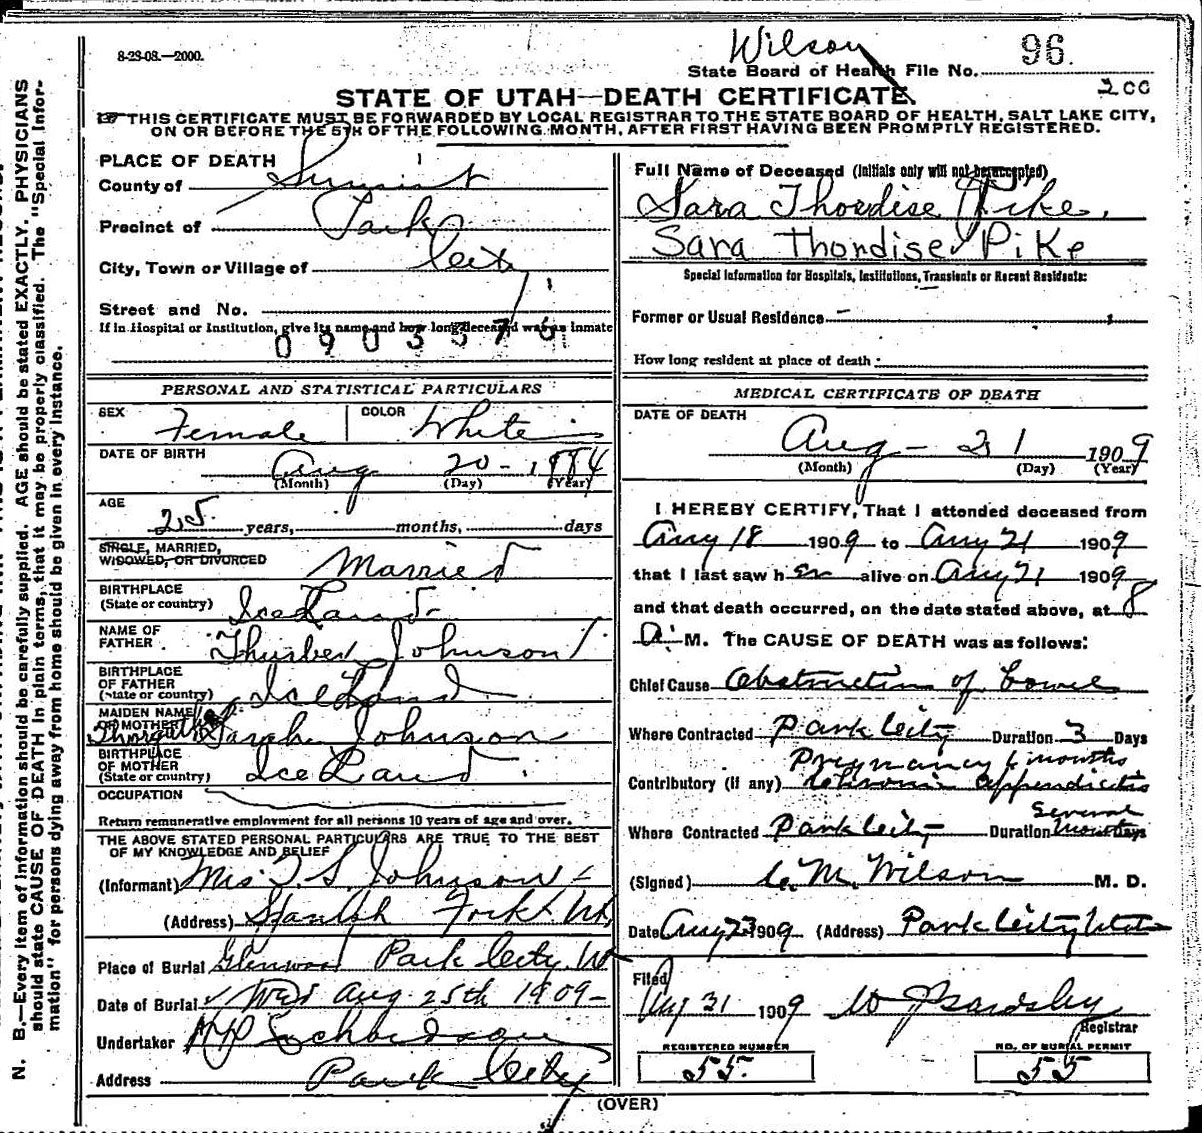 8-23-08.—2000.
Wilson
96.
State Board of Health File No.
200
STATE OF UTAH—DEATH CERTIFICATE.
THIS CERTIFICATE MUST BE FORWARDED BY LOCAL REGISTRAR TO THE STATE BOARD OF HEALTH, SALT LAKE CITY,
ON OR BEFORE THE 5TH OF THE FOLLOWING MONTH, AFTER FIRST HAVING BEEN PROMPLY REGISTERED.
PLACE OF DEATH
County of Summit
Precinct of Park
City, Town or Village of City
Street and No.
If in Hospital or Institution, give its name and how long deceased was as inmate
PERSONAL AND STATISTICAL PARTICULARS
SEX Female COLOR White
DATE OF BIRTH
Aug 20 - 1884
(Month) (Day) (Year)
AGE
25 years, months, days
SINGLE, MARRIED,
WIDOWED, OR DIVORCED Married
BIRTHPLACE
(State or country) IceLand
NAME OF
FATHER Johnson
BIRTHPLACE
OF FATHER
(State or country) IceLand
MAIDEN NAME
OF MOTHER Sarah Johnson
BIRTHPLACE
OF MOTHER
(State or country) IceLand
OCCUPATION
Return remunerative employment for all persons 10 years of age and over.
THE ABOVE STATED PERSONAL PARTICULARS ARE TRUE TO THE BEST
OF MY KNOWLEDGE AND BELIEF
(Informant) Mrs T. S. Johnson
(Address) Spanish Fork Ut
Place of Burial Glenwood Park City, Ut
Date of Burial Wed Aug 25th 1909
Undertaker
Address Park City
Full Name of Deceased (Initials only will not be accepted)
Sara Thordise Pike.
Sara Thordise Pike
Special Information for Hospitals, Institutions, Transients or Recent Residents:
Former or Usual Residence
How long resident at place of death :
MEDICAL CERTIFICATE OF DEATH
DATE OF DEATH
Aug - 21 1909
(Month) (Day) (Year)
I HEREBY CERTIFY, That I attended deceased from
Aug 18 1909 to Aug 21 1909
that I last saw her alive on Aug 21 1909
and that death occurred, on the date stated above, at 8
A. M. The CAUSE OF DEATH was as follows:
Chief Cause Obstruction of Bowel
Where Contracted Park City Duration 3 Days
Pregnancy 6 months
Contributory (if any) Chronic appendicitis
Several
Where Contracted Park City Duration Months Days
(Signed) C. M. Wilson M. D.
Date Aug 23 1909 (Address) Park City Utah
Filed
Aug 31 1909
Registrar
REGISTERED NUMBER
55.
NO. OF BURIAL PERMIT
55
(OVER)
N. B.—Every item of information should be carefully supplied. AGE should be stated EXACTLY. PHYSICIANS
should state CAUSE OF DEATH in plain terms, that it may be properly classified. The "Special Infor-
mation" for persons dying away from home should be given in every instance.